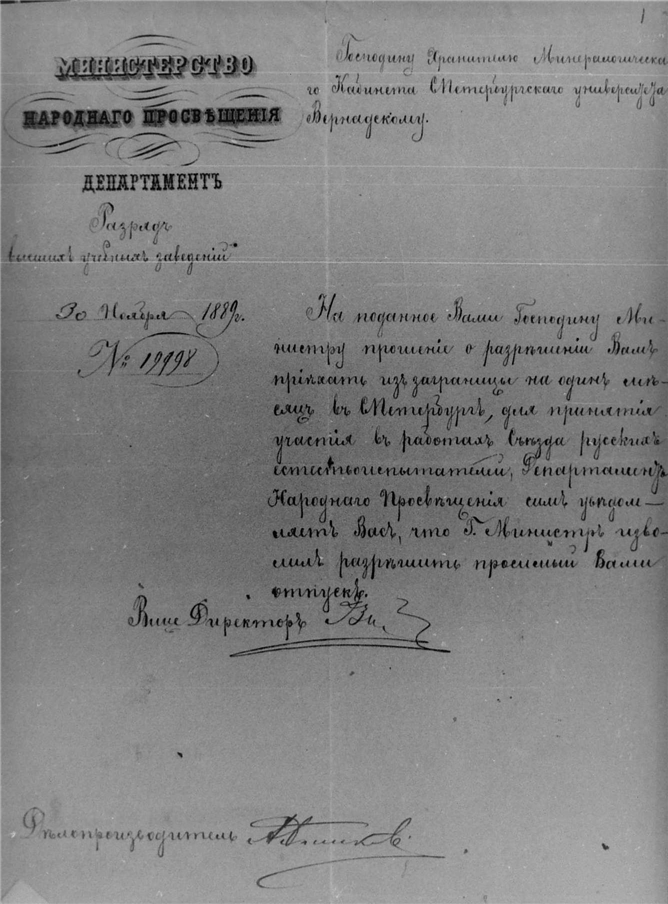 1
МИНИСТЕРСТВО
НАРОДНАГО ПРОСВѢЩЕНІЯ
ДЕПАРТАМЕНТЪ
Разрядъ
высшихъ учебныхъ заведеній
30 Ноября 1889 г.
№ 19998
Господину Хранителю Минералогическа
го Кабинета С Петербургскаго университета
Вернадскому.
На поданное Вами Господину Ми-
нистру прошеніе о разрѣшеніи Вамъ
пріѣхать изъ заграницы на одинъ мѣ-
сяцъ въ С Петербургъ, для принятія
участія въ работахъ Съѣзда русскихъ
естествоиспытателей, Департаментъ
Народнаго Просвѣщенія симъ увѣдом-
ляетъ Васъ, что Г. Министръ изво-
лилъ разрѣшить просимый Вами
отпускъ.
Вице Директоръ
Дѣлопроизводитель